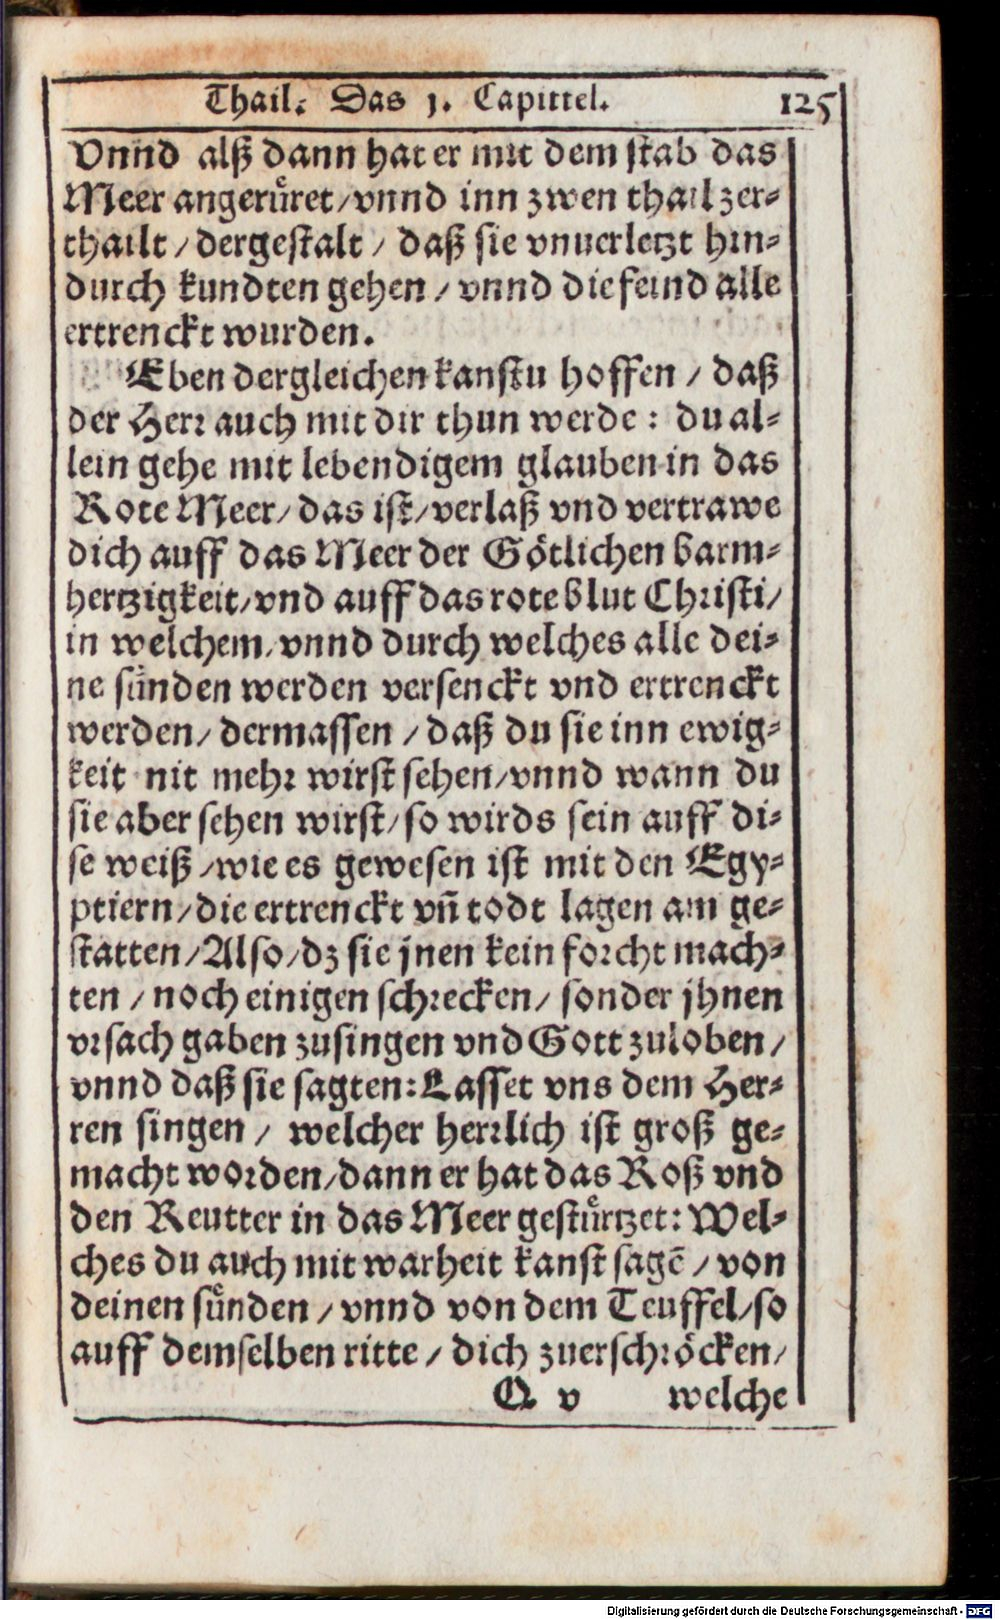 Thail. Das 1. Capittel. 125
Vnnd alß dann hat er mit dem stab das
Meer angerůret/vnnd inn zwen thail zer-
thailt / dergestalt / daß sie vnuerletzt hin-
durch kundten gehen / vnnd die feind alle
ertrenckt wurden.
Eben dergleichen kanstu hoffen / daß
der Herr auch mit dir thun werde: du al-
lein gehe mit lebendigem glauben in das
Rote Meer/das ist/verlaß vnd vertrawe
dich auff das Meer der Gȯtlichen barm-
hertzigkeit/vnd auff das rote blut Christi/
in welchem/vnnd durch welches alle dei-
ne sünden werden versenckt vnd ertrenckt
werden/ dermassen / daß du sie inn ewig-
keit nit mehr wirst sehen/vnnd wann du
sie aber sehen wirst/so wirds sein auff di-
se weiß/wie es gewesen ist mit den Egy-
ptiern/die ertrenckt vñ todt lagen am ge-
statten/Also/dz sie jnen kein forcht mach-
ten / noch einigen schrecken/ sonder jhnen
vrsach gaben zusingen vnd Gott zuloben/
vnnd daß sie sagten: Lasset vns dem Her-
ren singen / welcher herrlich ist groß ge-
macht worden/dann er hat das Roß vnd
den Reutter in das Meer gestürtzet: Wel-
ches du auch mit warheit kanst sagē / von
deinen sünden / vnnd von dem Teuffel/so
auff demselben ritte / dich zuerschröcken/
Q v welche
Digitalisierung gefördert durch die Deutsche Forschungsgemeinschaft - DFG